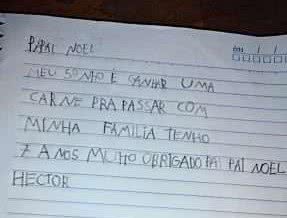 PAPAI NOEL
MEU SONHO É GANHAR UMA
CARNE PRA PASSAR COM
MINHA FAMILIA TENHO
7 ANOS MUITO OBRIGADO PAPAI NOEL
HECTOR